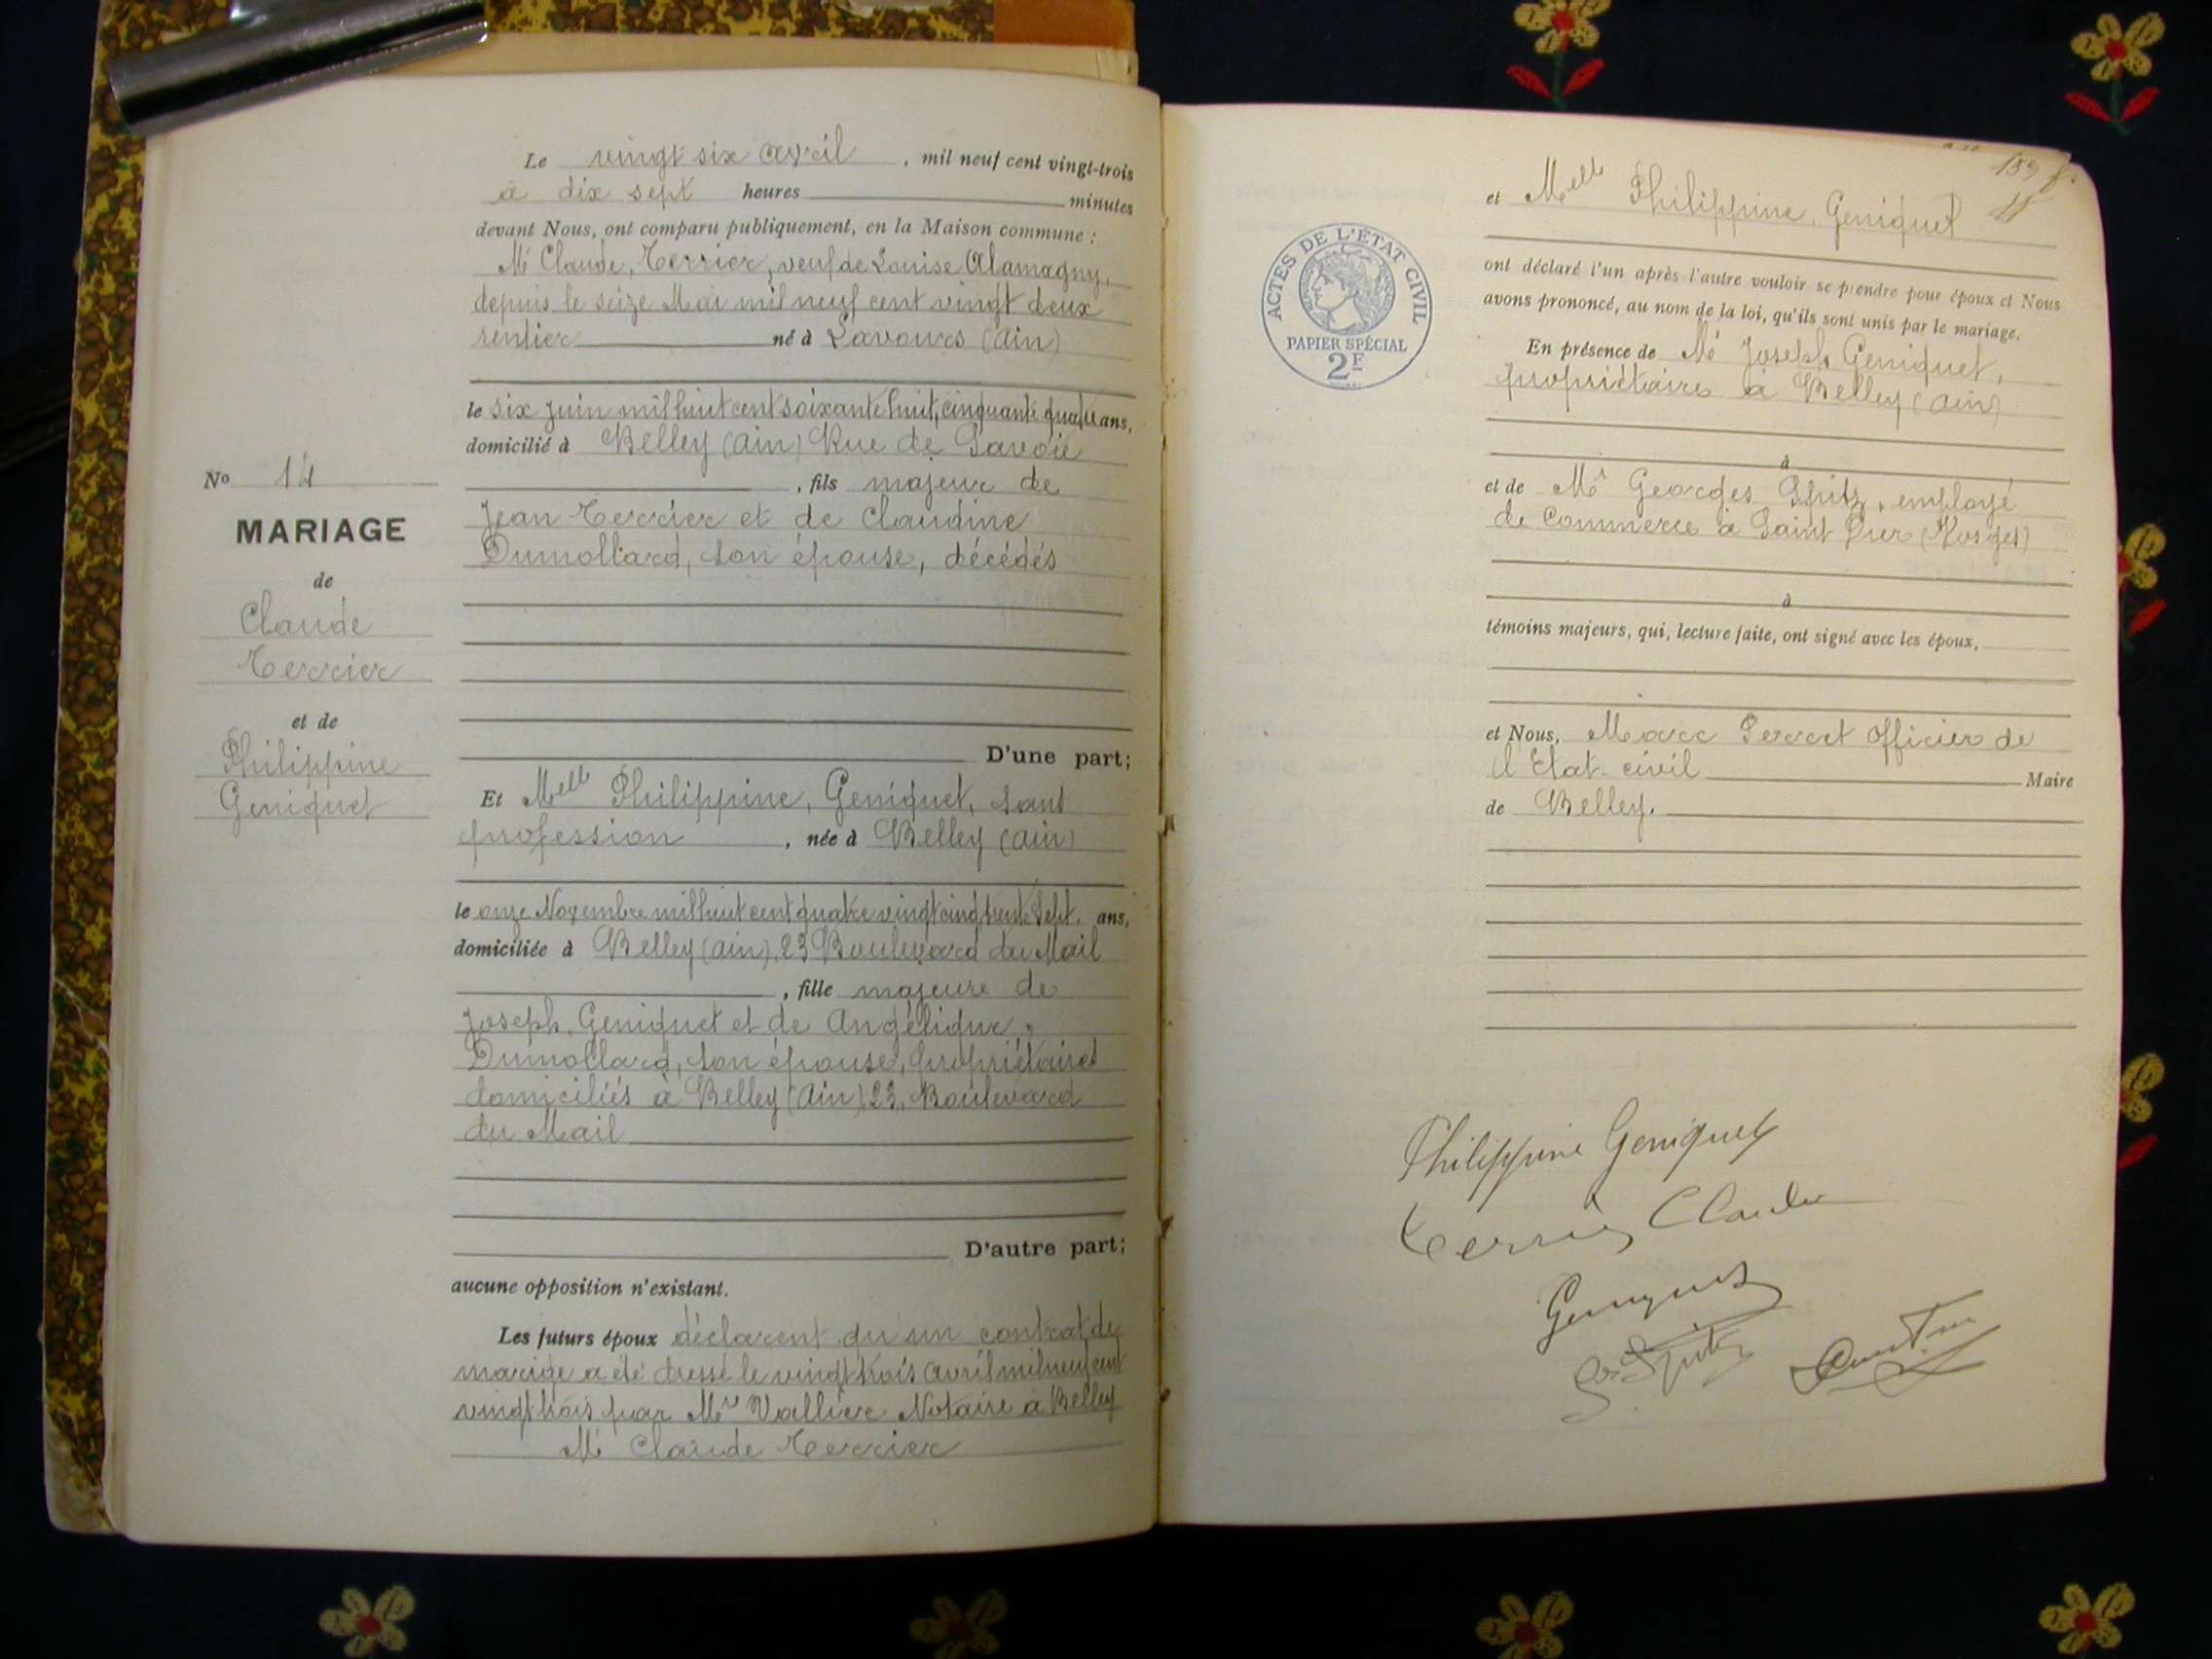 Le vingt six avril, mil neuf cent vingt-trois
à dix sept heures minutes
devant Nous, ont comparu publiquement, en la Maison commune :
Mr Claude, Terrier, veuf de Louise Alamagny,
depuis le seize Mai mil neuf cent vingt deux
rentier né à Lavours (Ain)
le six juin mil huit cent soixante huit, cinquante quatre ans,
domicilié à Belley (Ain) Rue de Savoie
, fils majeur de
Jean Terrier et de Claudine
Dumollard, son épouse, décédés
No 14
MARIAGE
de
Claude
Terrier
et de
Philippine
Geniquet
D'une part;
Et Melle Philippine, Geniquet, sans
profession, née à Belley (Ain)
le onze Novembre mil huit cent quatre vingt cinq trente sept. ans,
domiciliée à Belley (Ain), 23 Boulevard du Mail
, fille majeure de
Joseph, Geniquet et de Angélique,
Dumollard, son épouse, propriétaires
domiciliés à Belley (Ain), 23, Boulevard
du Mail
D'autre part;
aucune opposition n'existant.
Les futurs époux déclarent qu'un contrat de
mariage a été dressé le vingt trois avril mil neuf cent
vingt trois par Me Vallier Notaire à Belley
Mr Claude Terrier
159
et Melle Philippine, Geniquet
ont déclaré l'un après l'autre vouloir se prendre pour époux et Nous
avons prononcé, au nom de la loi, qu'ils sont unis par le mariage.
ACTES DE L'ÉTAT CIVIL
PAPIER SPÉCIAL
2F
En présence de Mr Joseph Geniquet,
propriétaire à Belley (Ain)
à
et de Mr Georges Spitz, employé
de Commerce à Saint Dier (Vosges)
à
témoins majeurs, qui, lecture faite, ont signé avec les époux,
et Nous, Marc officier de
l'Etat-civil Maire
de Belley.
Philippine Geniquet
Terrier Claude
Geniquet
G. Spitz